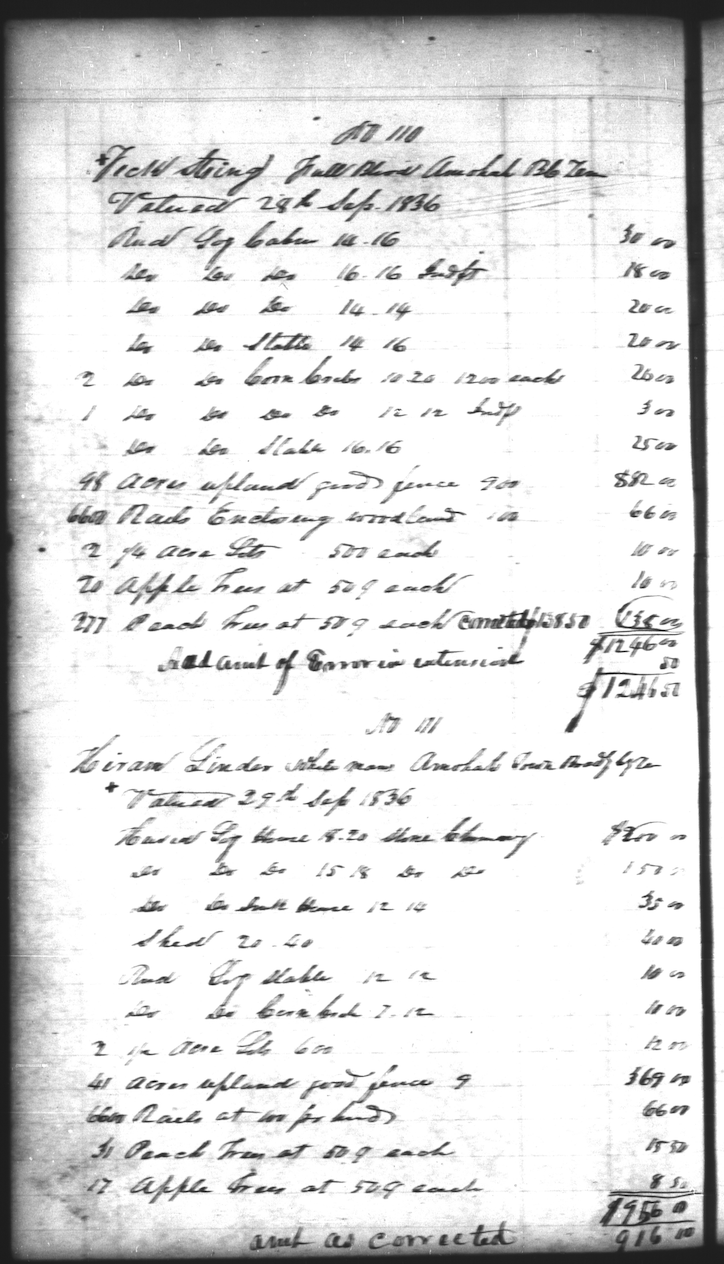 No 110
+ String Full Blood Amohah Ten
Valued 28th Sep. 1836
Rud Log Cabin 14-16 30 00
Do Do Do 16-16 Indft 18 00
Do Do Do 14-14 20 00
Do Do Stable 14 16 20 00
2 Do Do Corn Cribs 10-20 12 00 each 26 00
1 Do Do Do Do 12 12 Indft 3 00
Do Do Stable 16-16 25 00
98 Acres upland good fence 9 00 882 00
6600 Rails Enclosing woodland 1 00 66 00
2 1/4 Acre Lots 500 each 10 00
20 Apple Trees at 50 ¢ each 10 00
277 Peach Trees at 50 ¢ each 138 50 138 00
$1246 00
Add amt of Error in extension 50
$1246 50
No 111
Hiram Linder White man Amohah Town
+ Valued 29th Sep 1836
Hewed Log House 18-20 Stone Chimney $200 00
Do Do Do 15 18 Do Do 150
Do Do House 12 14 35 00
Shed 20-40 40 00
Rud Log Stable 12 12 10 00
Do Do Corn Crib 7-12 10 00
2 Acre Lots 600 12 00
41 Acres upland good fence 9 369 00
6600 Rails at 100 pr hund 66 00
31 Peach Trees at 50 ¢ each 15 50
17 Apple Trees at 50 ¢ each 8 50
$956 00
amt as corrected 916 00